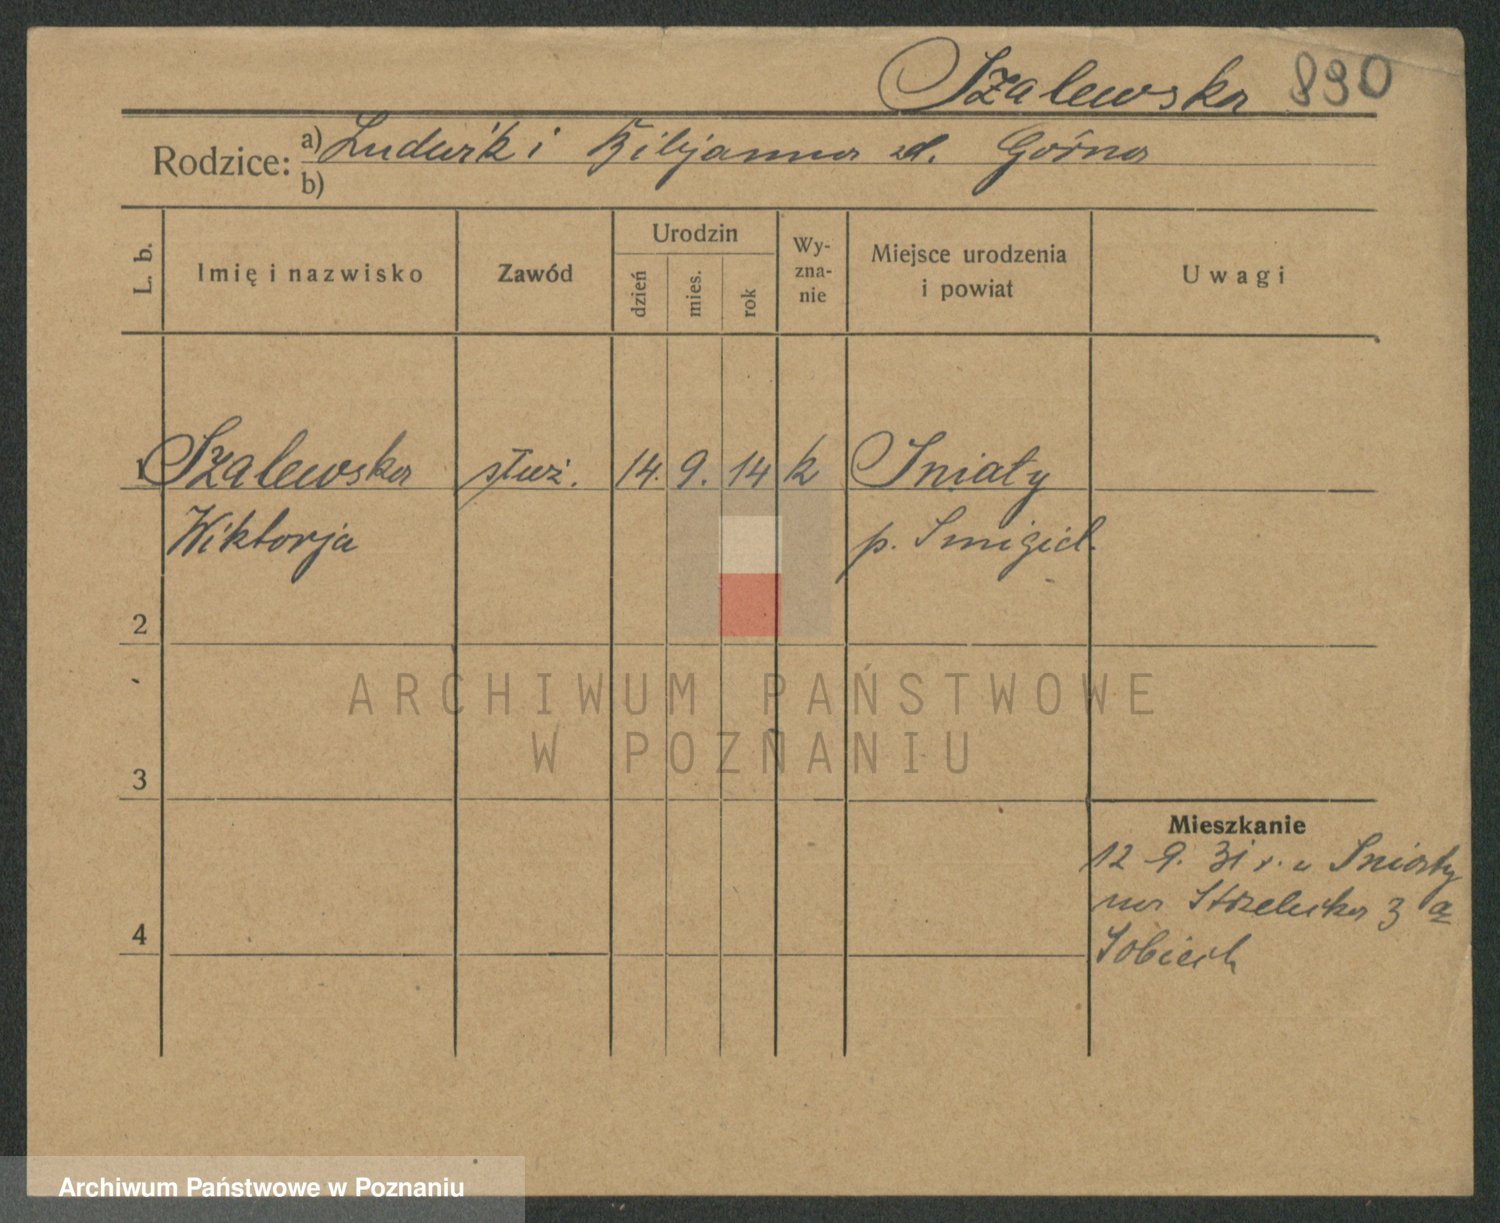 Szalewska 890
Rodzice: a) Ludwik i Kiljanna zd. Górna
b)
L. b. Imię i nazwisko Zawód Urodzin dzień mies. rok Wy-zna-nie Miejsce urodzenia i powiat Uwagi
1 Szalewska służ. 14. 9. 14 k Śniaty
Wiktorja p. Śmigiel.
2
ARCHIWUM PAŃSTWOWE
W POZNANIU
3
Mieszkanie
12 9. 31 r. z Śniaty
na Strzelecka 3 a
4
Sobiech
Archiwum Państwowe w Poznaniu